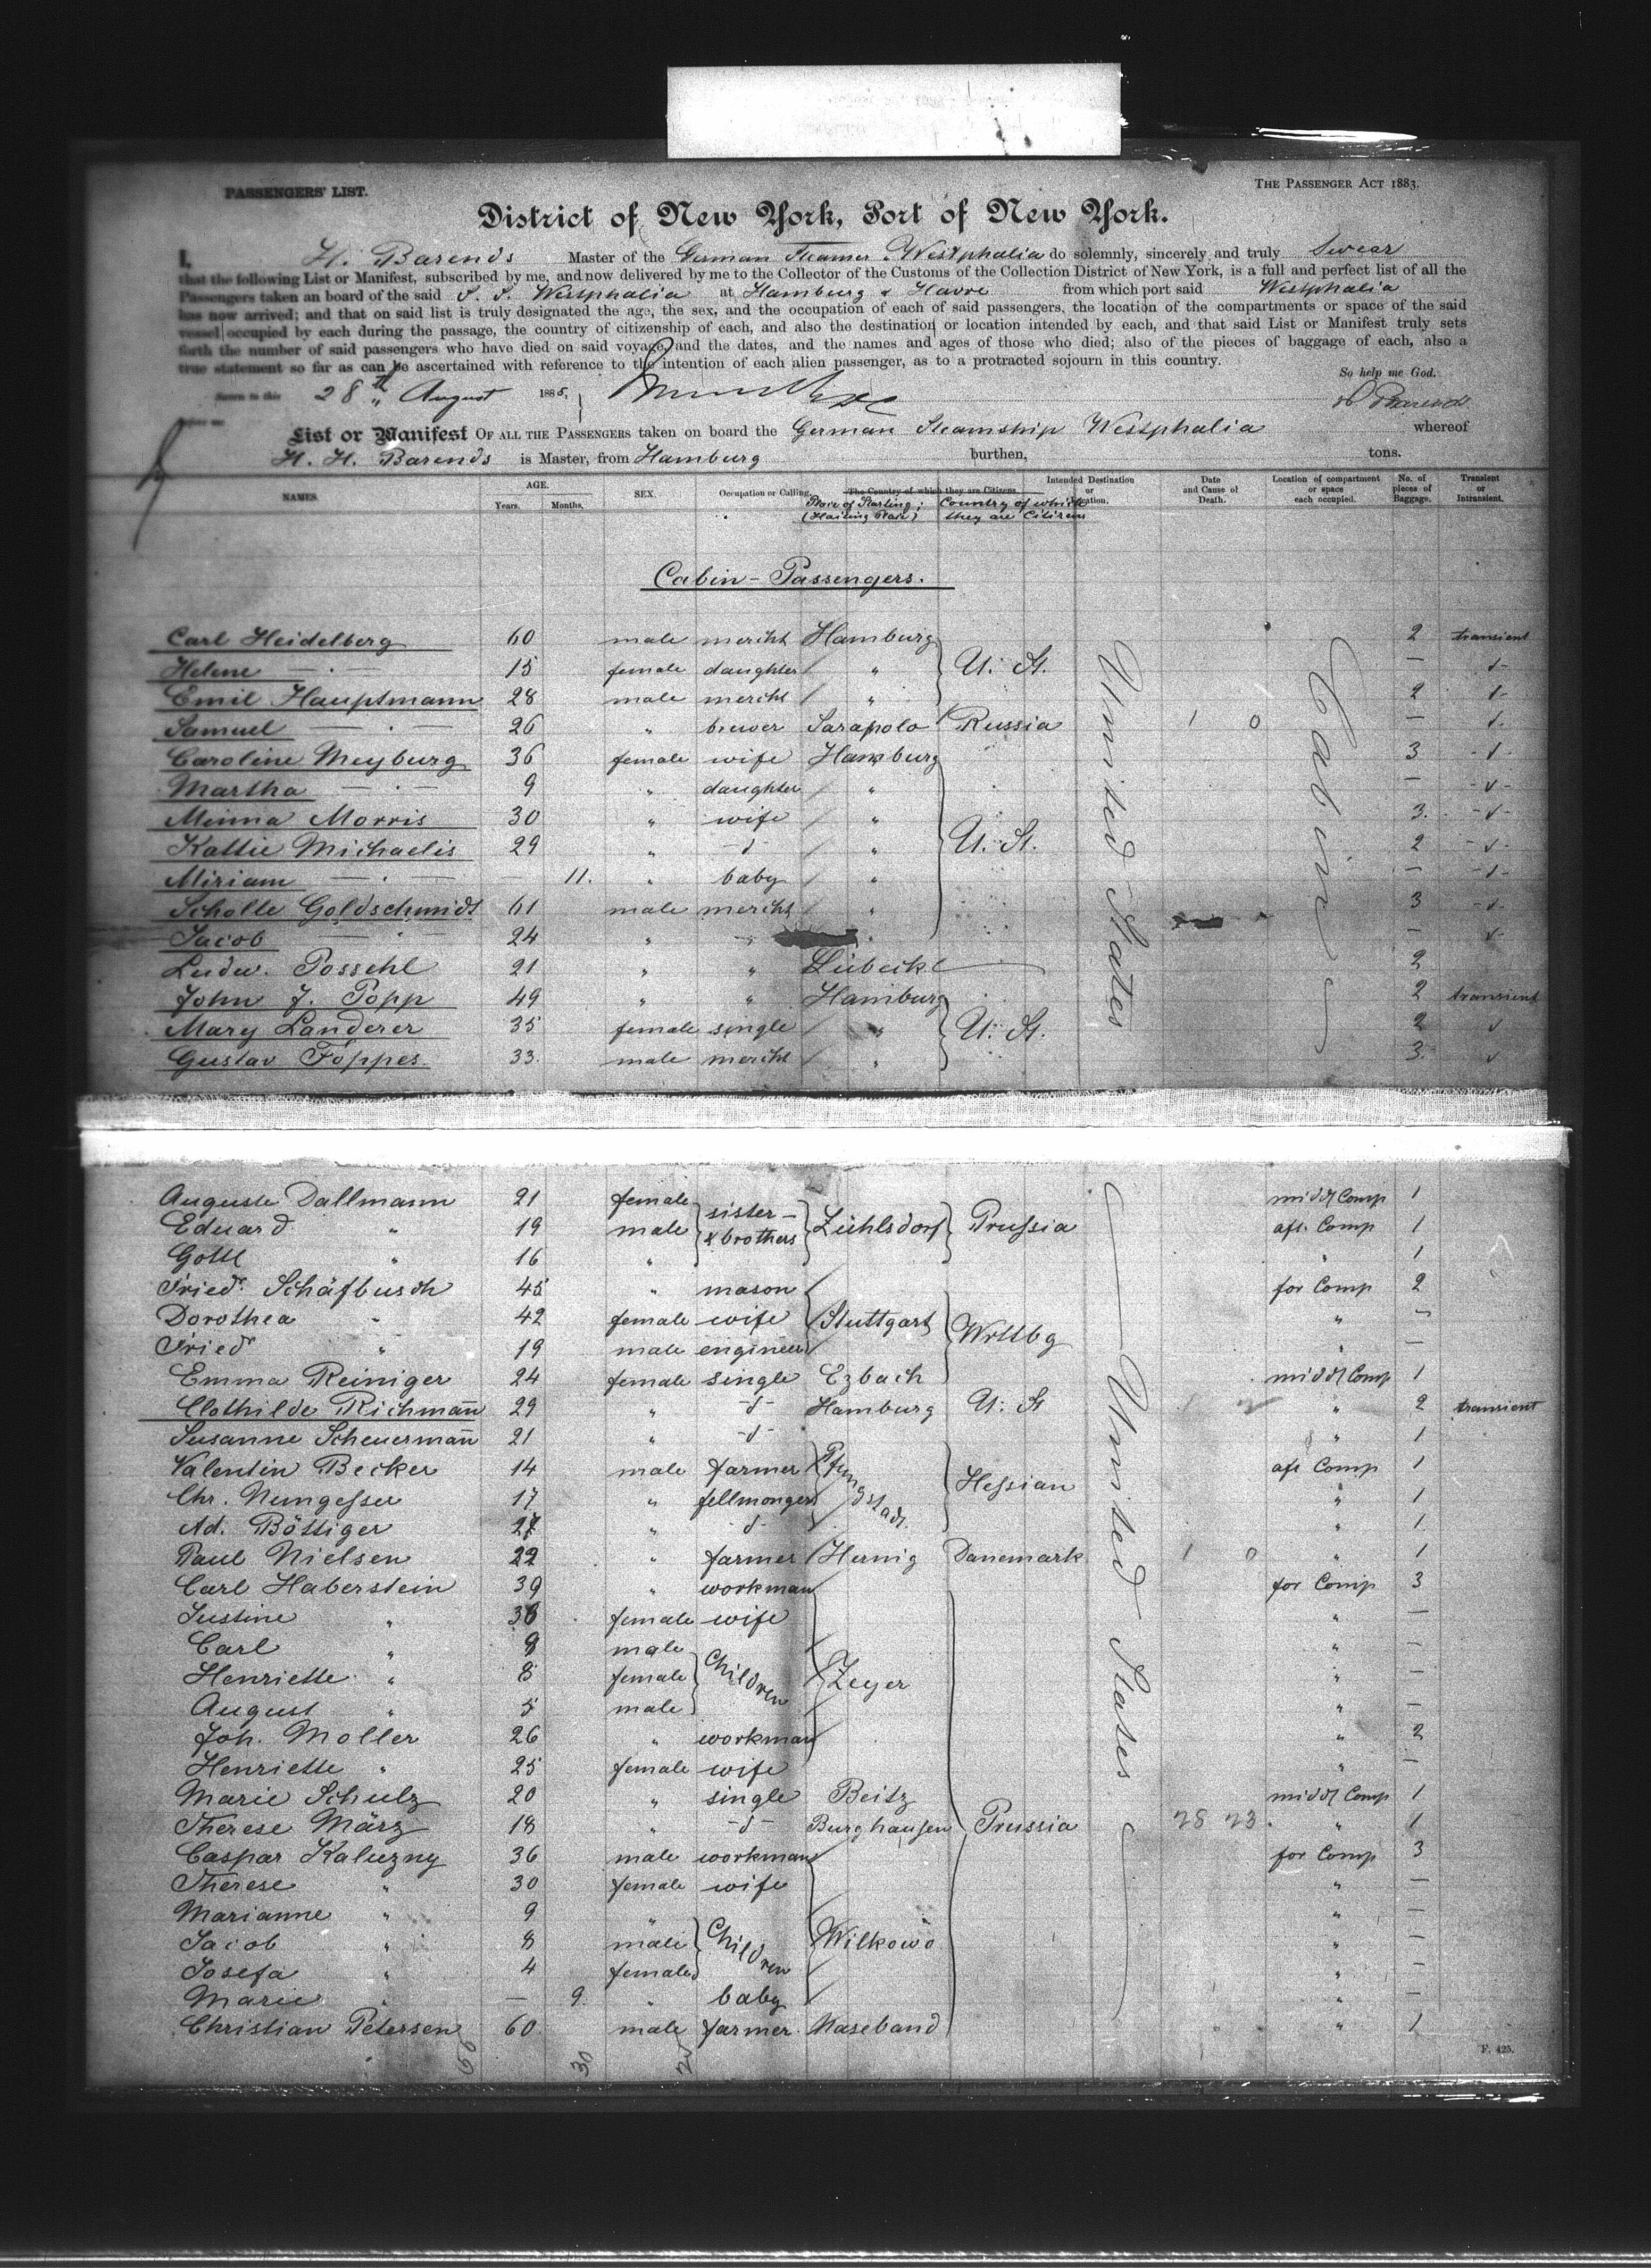 PASSENGERS' LIST.
THE PASSENGER ACT 1883.
District of New York, Port of New York.
I, H. Barends Master of the German Steamer Westphalia do solemnly, sincerely and truly Swear
that the following List or Manifest, subscribed by me, and now delivered by me to the Collector of the Customs of the Collection District of New York, is a full and perfect list of all the
Passengers taken on board of the said S. S. Westphalia at Hamburg & Havre from which port said Westphalia
has now arrived; and that on said list is truly designated the age, the sex, and the occupation of each of said passengers, the location of the compartments or space of the said
vessel occupied by each during the passage, the country of citizenship of each, and also the destination or location intended by each, and that said List or Manifest truly sets
forth the number of said passengers who have died on said voyage, and the dates, and the names and ages of those who died; also of the pieces of baggage of each, also a
true statement so far as can be ascertained with reference to the intention of each alien passenger, as to a protracted sojourn in this country.
So help me God.
Sworn to this 28th August 1885, H Barends
before me
List or Manifest OF ALL THE PASSENGERS taken on board the German Steamship Westphalia whereof
H. H. Barends is Master, from Hamburg burthen, tons.
NAMES. AGE. Years. Months. SEX. Occupation or Calling. The Country of which they are Citizens. Intended Destination or Location. Date and Cause of Death. Location of compartment or space each occupied. No. of pieces of Baggage. Transient or Intransient.
Place of Starting; (Hailing Place) Country of which they are Citizens
Cabin - Passengers.
Carl Heidelberg 60 male mercht Hamburg 2 transient
Helene — · — 15 female daughter " U. St. —
Emil Hauptmann 28 male mercht " 2
Samuel — · — 26 " brewer Sarapolo Russia 1 0 —
Caroline Meyburg 36 female wife Hamburg 3
Martha — · — 9 " daughter " —
Minna Morris 30 " wife " 3.
Kattie Michaelis 29 " -d- " U. St. 2
Miriam — · — — 11. " baby " —
Scholle Goldschmidt 61 male mercht " 3
Jacob — · — 24 " " " —
Ludw. Possehl 21 " " Lübeck 2
John J. Popp 49 " " Hamburg 2 transient
Mary Landerer 35 female single " U. St. 2
Gustav Föppes. 33. male mercht " 3.
United States
Cabin
Auguste Dallmann 21 female sister - middl Comp 1
Eduard " 19 male & brothers Zühlsdorf Prussia aft. Comp 1
Gottl " 16 " " 1
Friedr. Schäfbusch 45 " mason for Comp 2
Dorothea " 42 female wife Stuttgart Wrttbg " —
Friedr " 19 male engineer " —
Emma Reiniger 24 female single Ezbach middl Comp 1
Clothilde Richmann 29 " -d- Hamburg U. St " 2 transient
Susanne Scheuermann 21 " -d- " 1
Valentin Becker 14 male farmer Pfungstadt Hessian aft Comp 1
Chr. Nungesser 17 " fellmonger " 1
Ad. Böttiger 27 " -d- " 1
Paul Nielsen 22 " farmer Hernig Danemark 1 0 " 1
Carl Haberstein 39 " workman for Comp 3
Justine " 36 female wife " —
Carl " 9 male " —
Henriette " 8 female Children Zeyer " —
August " 5 male " —
Joh. Moller 26 " workman " 2
Henriette " 25 female wife " —
Marie Schulz 20 " single Beitz middl Comp 1
Therese März 18 " -d- Burghausen Prussia 28 23 " 1
Caspar Kaluzny 36 male workman for Comp 3
Therese " 30 female wife " —
Marianne " 9 " " —
Jacob " 8 male Children Wilkowo " —
Josefa " 4 female " —
Marie " — 9. " baby " —
Christian Petersen 60 male farmer Maseband " 1
United States
F. 425.